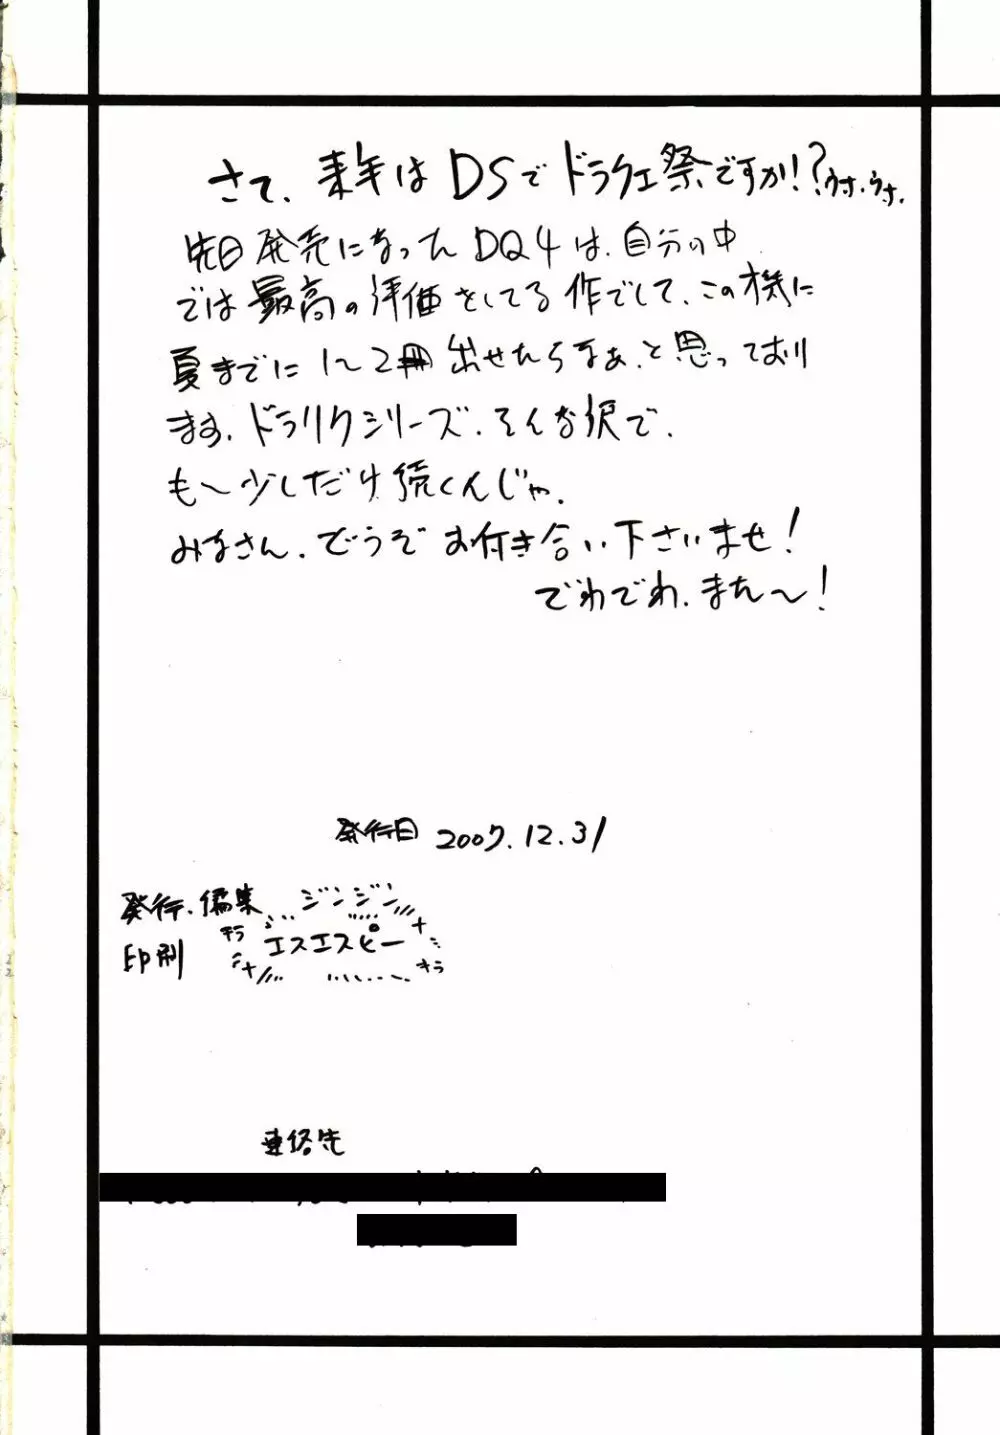 さて、来年はDSでドラクエ祭ですか!?ウホ.ウホ.
先日発売になったDQ4は、自分の中
では最高の評価をしてる作でして、この機に
夏までに1~2冊出せたらなぁ、と思っており
ます。ドラリクシリーズ、そんな訳で、
も~少しだけ続くんじゃ。
みなさん、どうぞお付き合い下さいませ!
でわでわ、また~!
発行日 2007.12.31
発行、編集 ジンジン
印刷 キラ エスエスピー キラ
連絡先